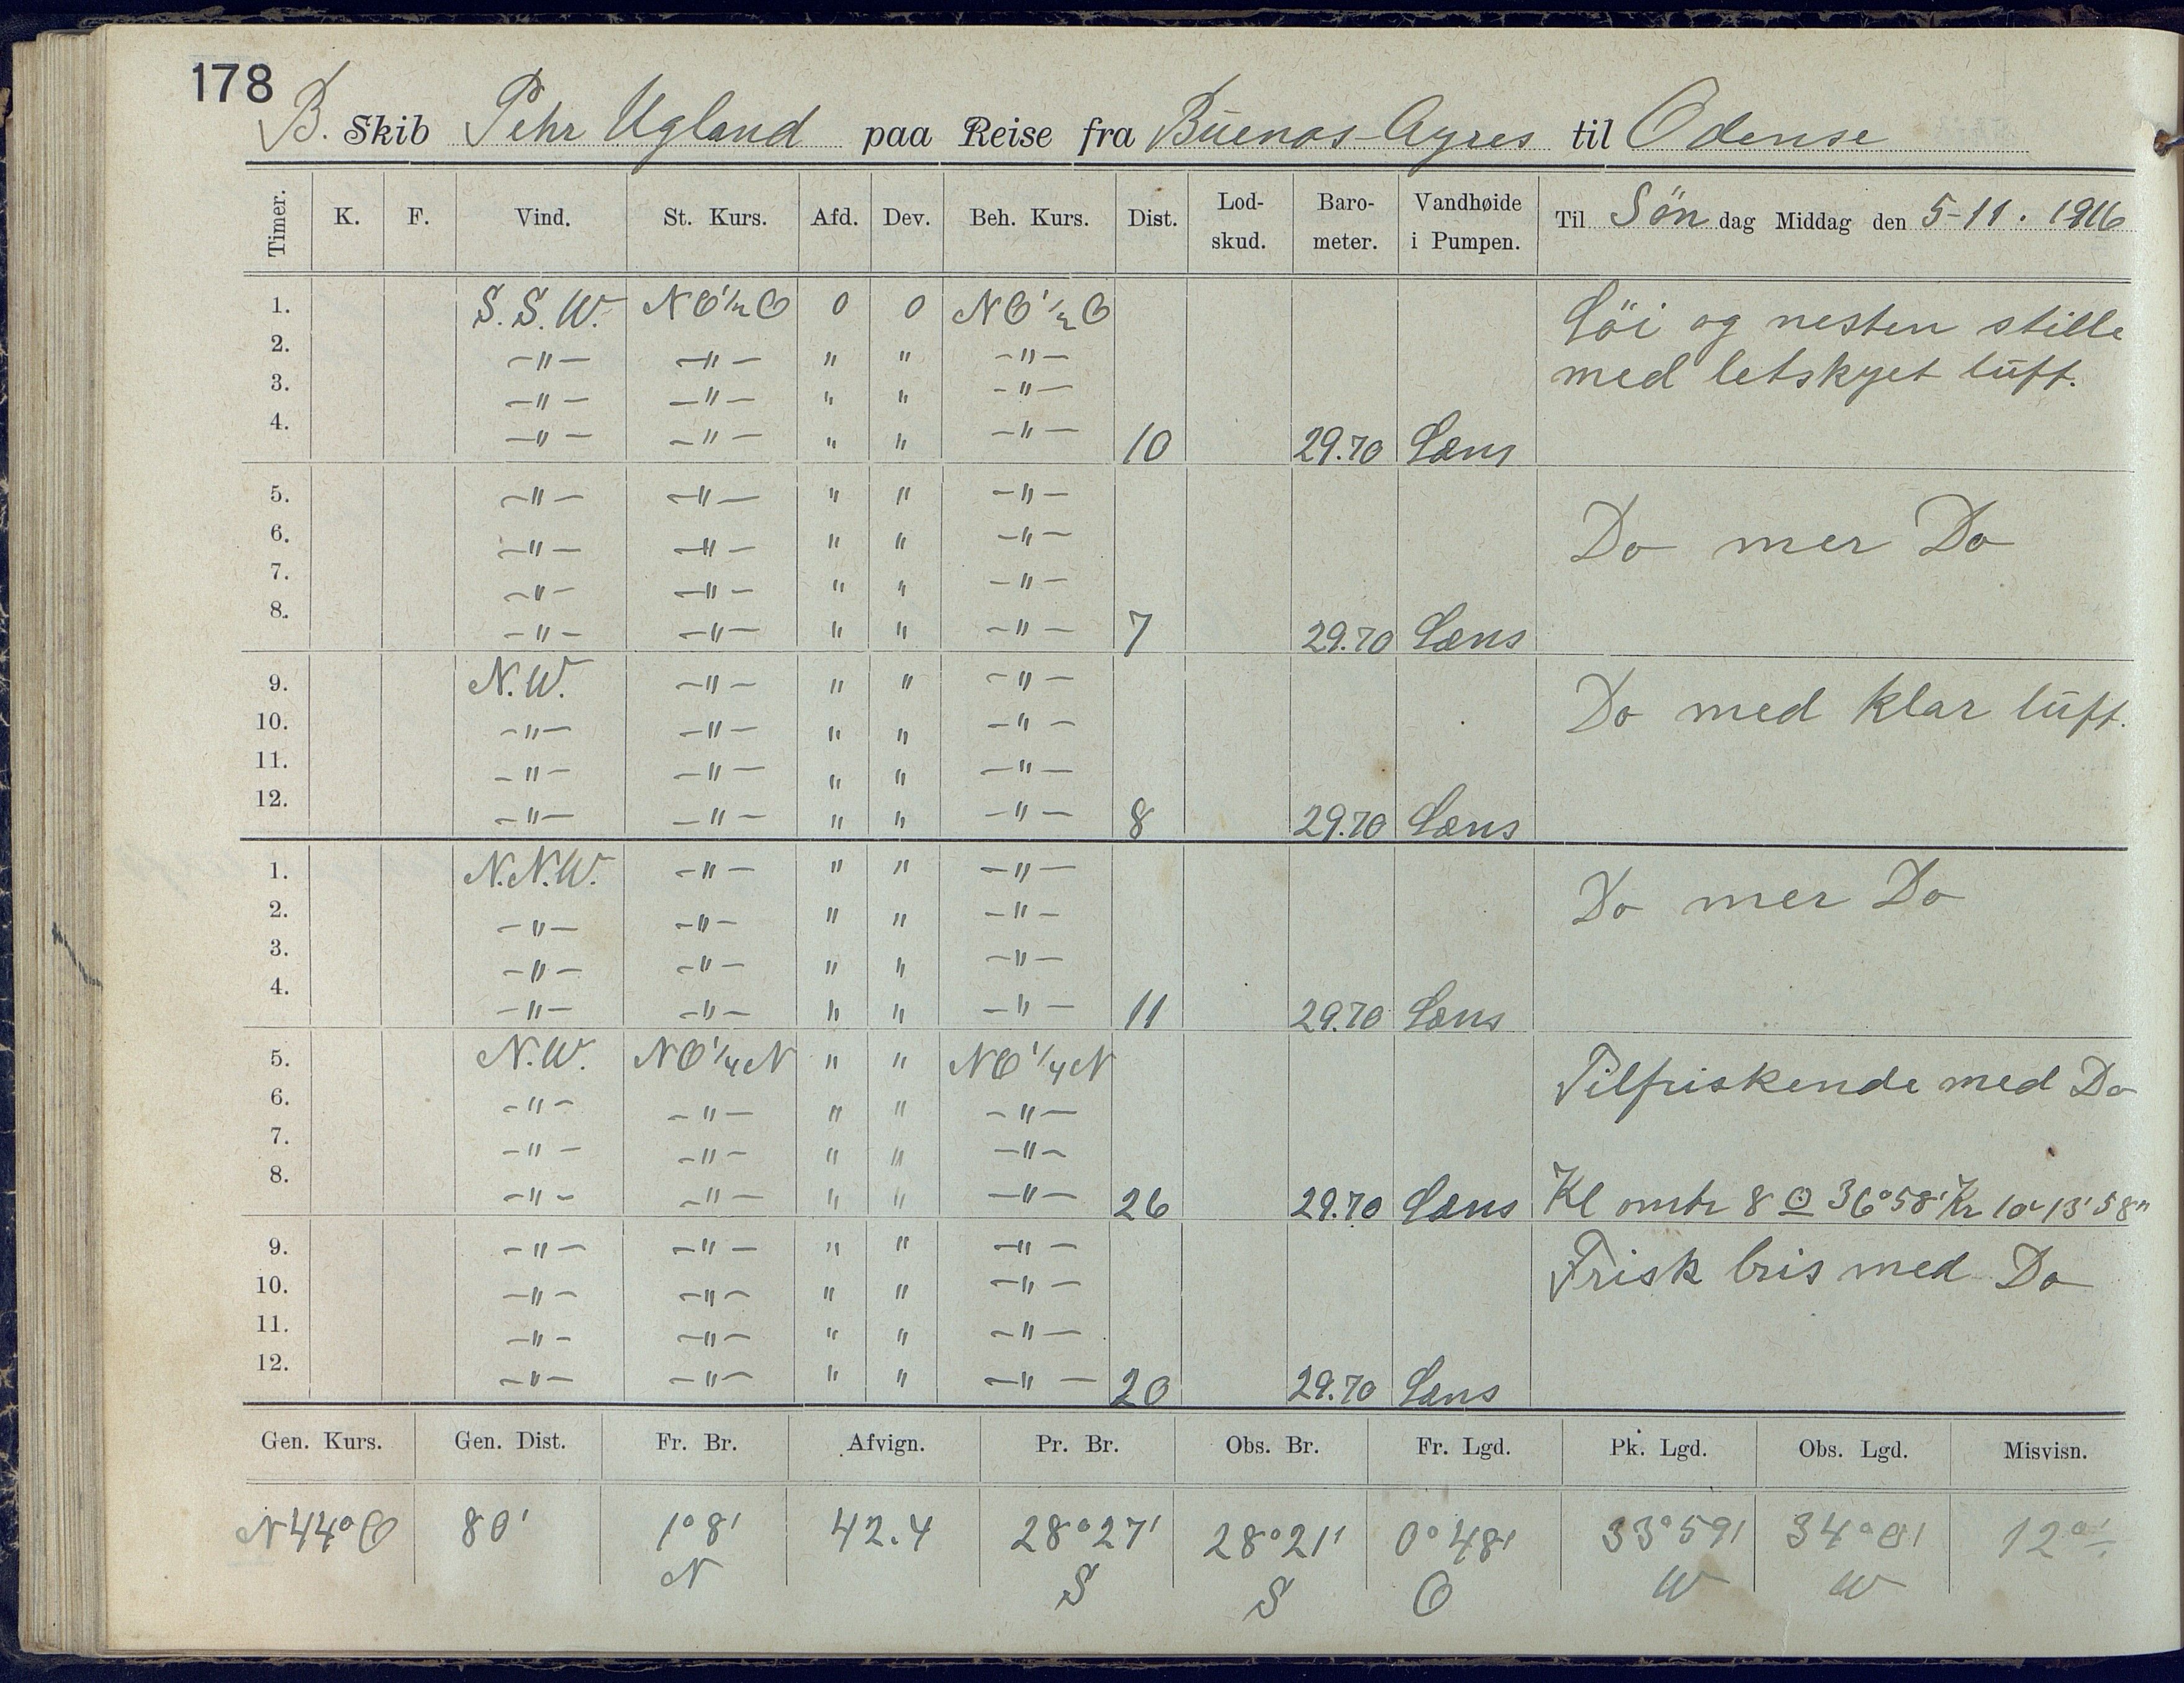 178
B. Skib Pehr Ugland paa Reise fra Buenos-Ayres til Odense
Timer. K. F. Vind. St. Kurs. Afd. Dev. Beh. Kurs. Dist. Lod-skud. Baro-meter. Vandhøide i Pumpen. Til Søn dag Middag den 5-11. 1916
1. S.S.W. NO½O 0 0 NO½O Löi og nesten stille
2. -"- -"- " " -"- med letskyet luft.
3. -"- -"- " " -"-
4. -"- -"- " " -"- 10 29.70 Læns
5. -"- -"- " " -"- Do mer Do
6. -"- -"- " " -"-
7. -"- -"- " " -"-
8. -"- -"- " " -"- 7 29.70 Læns
9. N.W. -"- " " -"- Do med klar luft.
10. -"- -"- " " -"-
11. -"- -"- " " -"-
12. -"- -"- " " -"- 8 29.70 Læns
1. N.N.W. -"- " " -"- Do mer Do
2. -"- -"- " " -"-
3. -"- -"- " " -"-
4. -"- -"- " " -"- 11 29.70 Læns
5. N.W. NO¼N " " NO¼N Tilfriskende med Do
6. -"- -"- " " -"-
7. -"- -"- " " -"-
8. -"- -"- " " -"- 26 29.70 Læns Kl omtr 8 ☉ 36°58' Kr 13' 58"
9. -"- -"- " " -"- Frisk bris med Do
10. -"- -"- " " -"-
11. -"- -"- " " -"-
12. -"- -"- " " -"- 20 29.70 Læns
Gen. Kurs. Gen. Dist. Fr. Br. Afvign. Pr. Br. Obs. Br. Fr. Lgd. Pk. Lgd. Obs. Lgd. Misvisn.
N44°O 80' 1°8' 42.4 28°27' 28°21' 0°48' 33°59' 34°0' 12°
N S S O W W